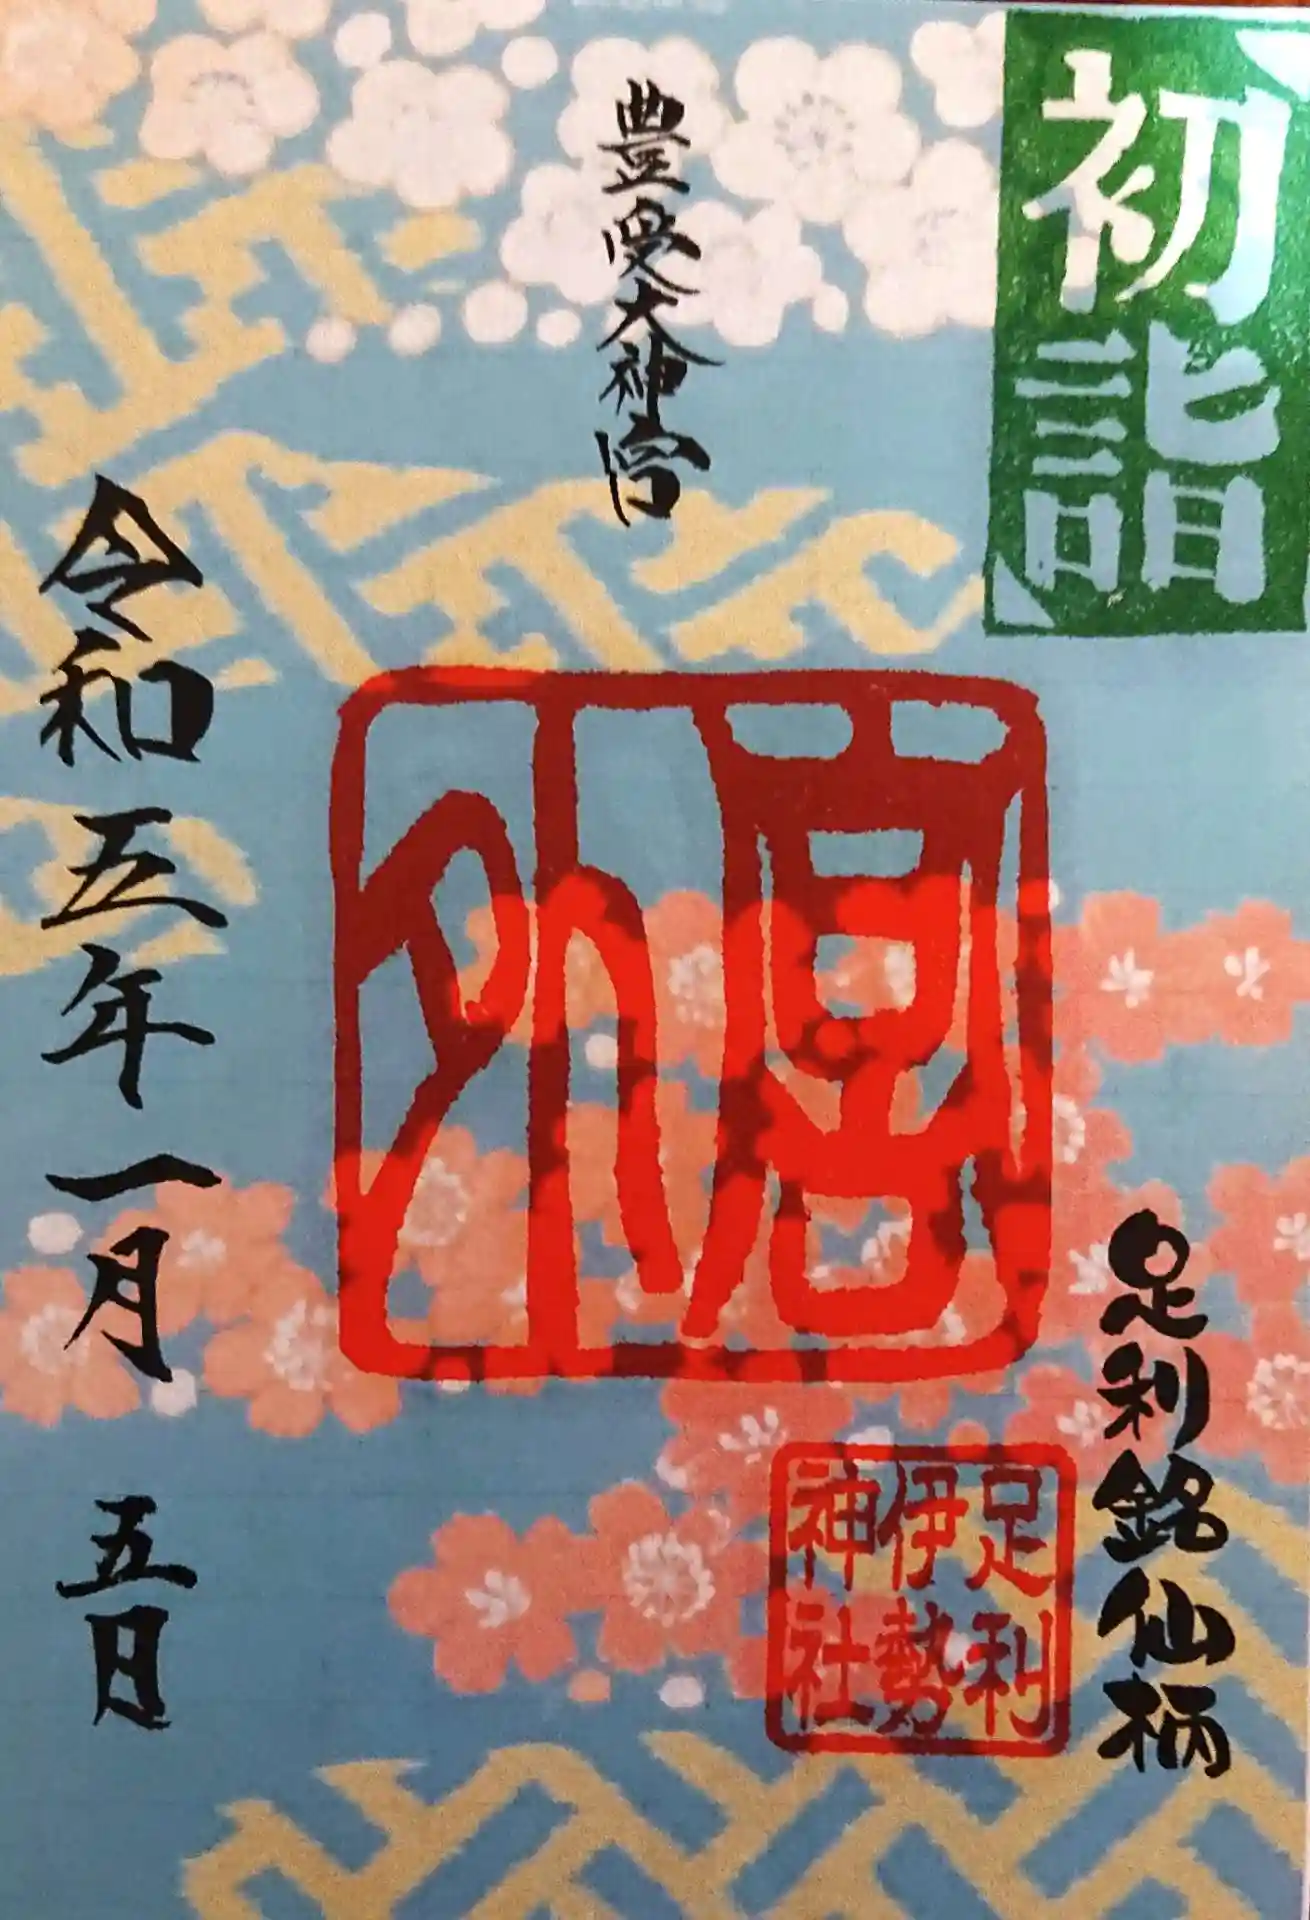 初詣
豊受大神宮
外宮
足利銘仙柄
足利
伊勢
神社
令和五年一月 五日